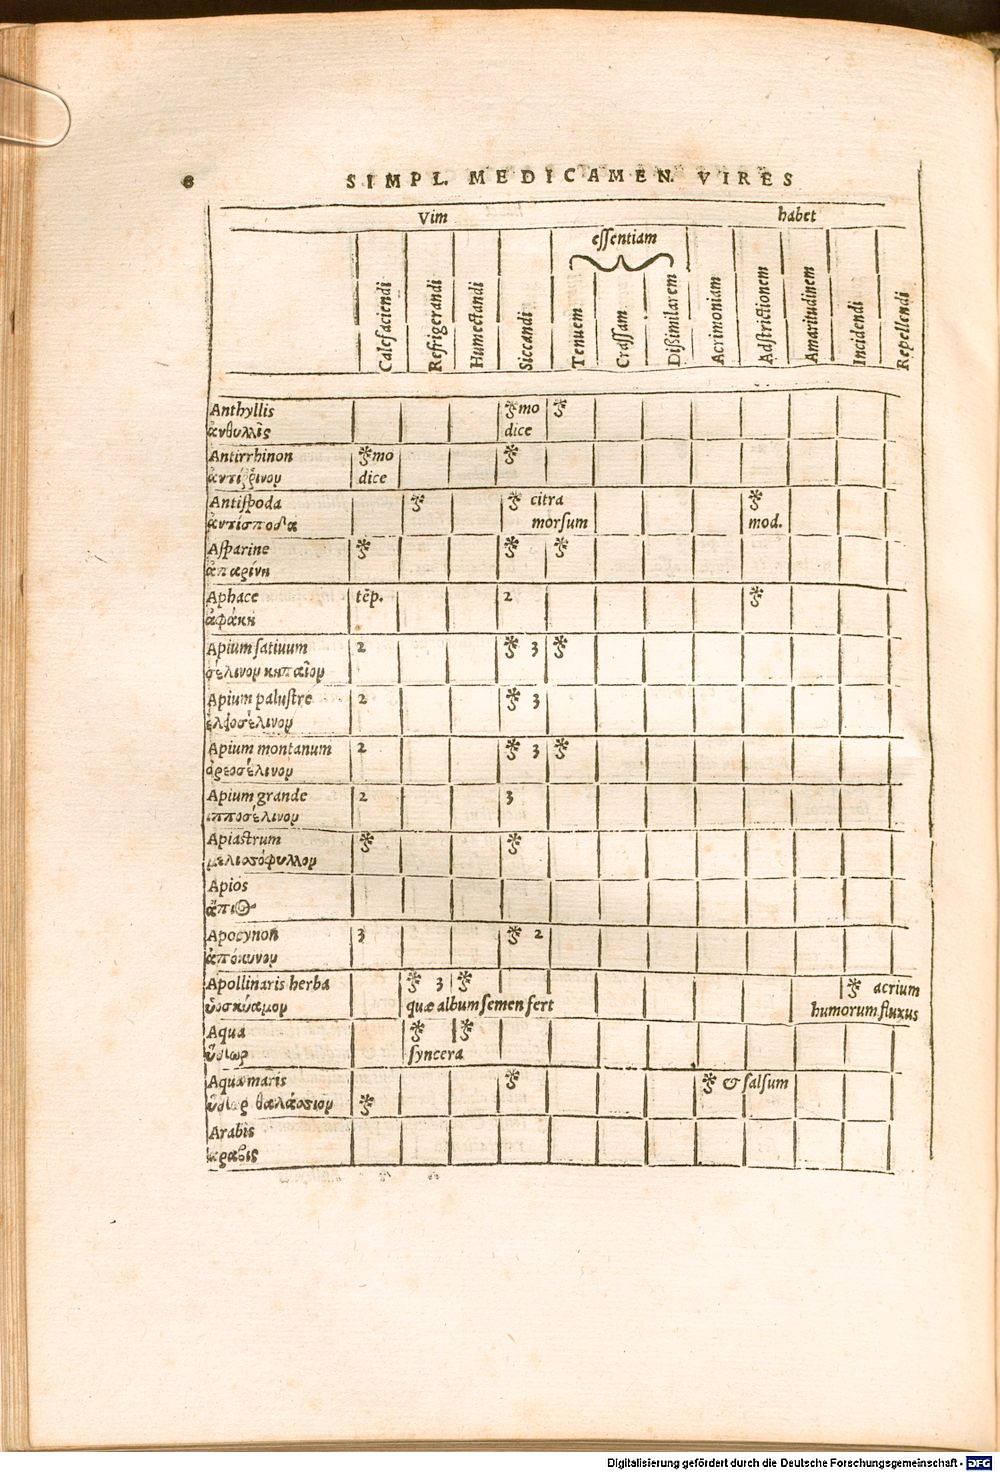 6 SIMPL. MEDICAMEN. VIRES
Vim habet
essentiam
Calefaciendi Refrigerandi Humectandi Siccandi Tenuem Crassam Dißimilarem Acrimoniam Adstrictionem Amaritudinem Incidendi Repellendi
Anthyllis mo
ἀνθυλλὶς dice
Antirrhinon mo
ἀντίῤῥινον dice
Antispoda citra
ἀντίσποδα morsum mod.
Asparine
ἀπαρίνη
Aphace tēp. 2
ἀφάκη
Apium sativum 2 3
σέλινον κηπαῖον
Apium palustre 2 3
ἑλφοσέλινον
Apium montanum 2 3
ὀρεοσέλινον
Apium grande 2 3
ιπποσέλινον
Apiastrum
μελισσόφυλλον
Apios
ἄπιος
Apocynon 3 2
ἀπόκυνον
Apollinaris herba 3 acrium
ὑοσκύαμον quæ album semen fert humorum fluxus
Aqua
ὕδωρ syncera
Aqua maris & salsum
ὕδωρ θαλάσσιον
Arabis
αραβις
Digitalisierung gefördert durch die Deutsche Forschungsgemeinschaft - DFG